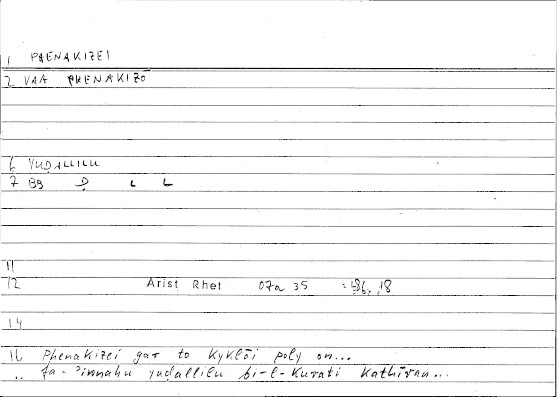 1 PHENAKIZEI
2 VAA PHENAKIZŌ
6 YUḌALLILU
7 BB Ḍ L L
11
12 Arist Rhet 07a 35 : 186, 18
14
16 Phenakizei gar to kyklōi poly on...
.. fa-'innahu yuḍallilu bi-l-kurati kathīran...